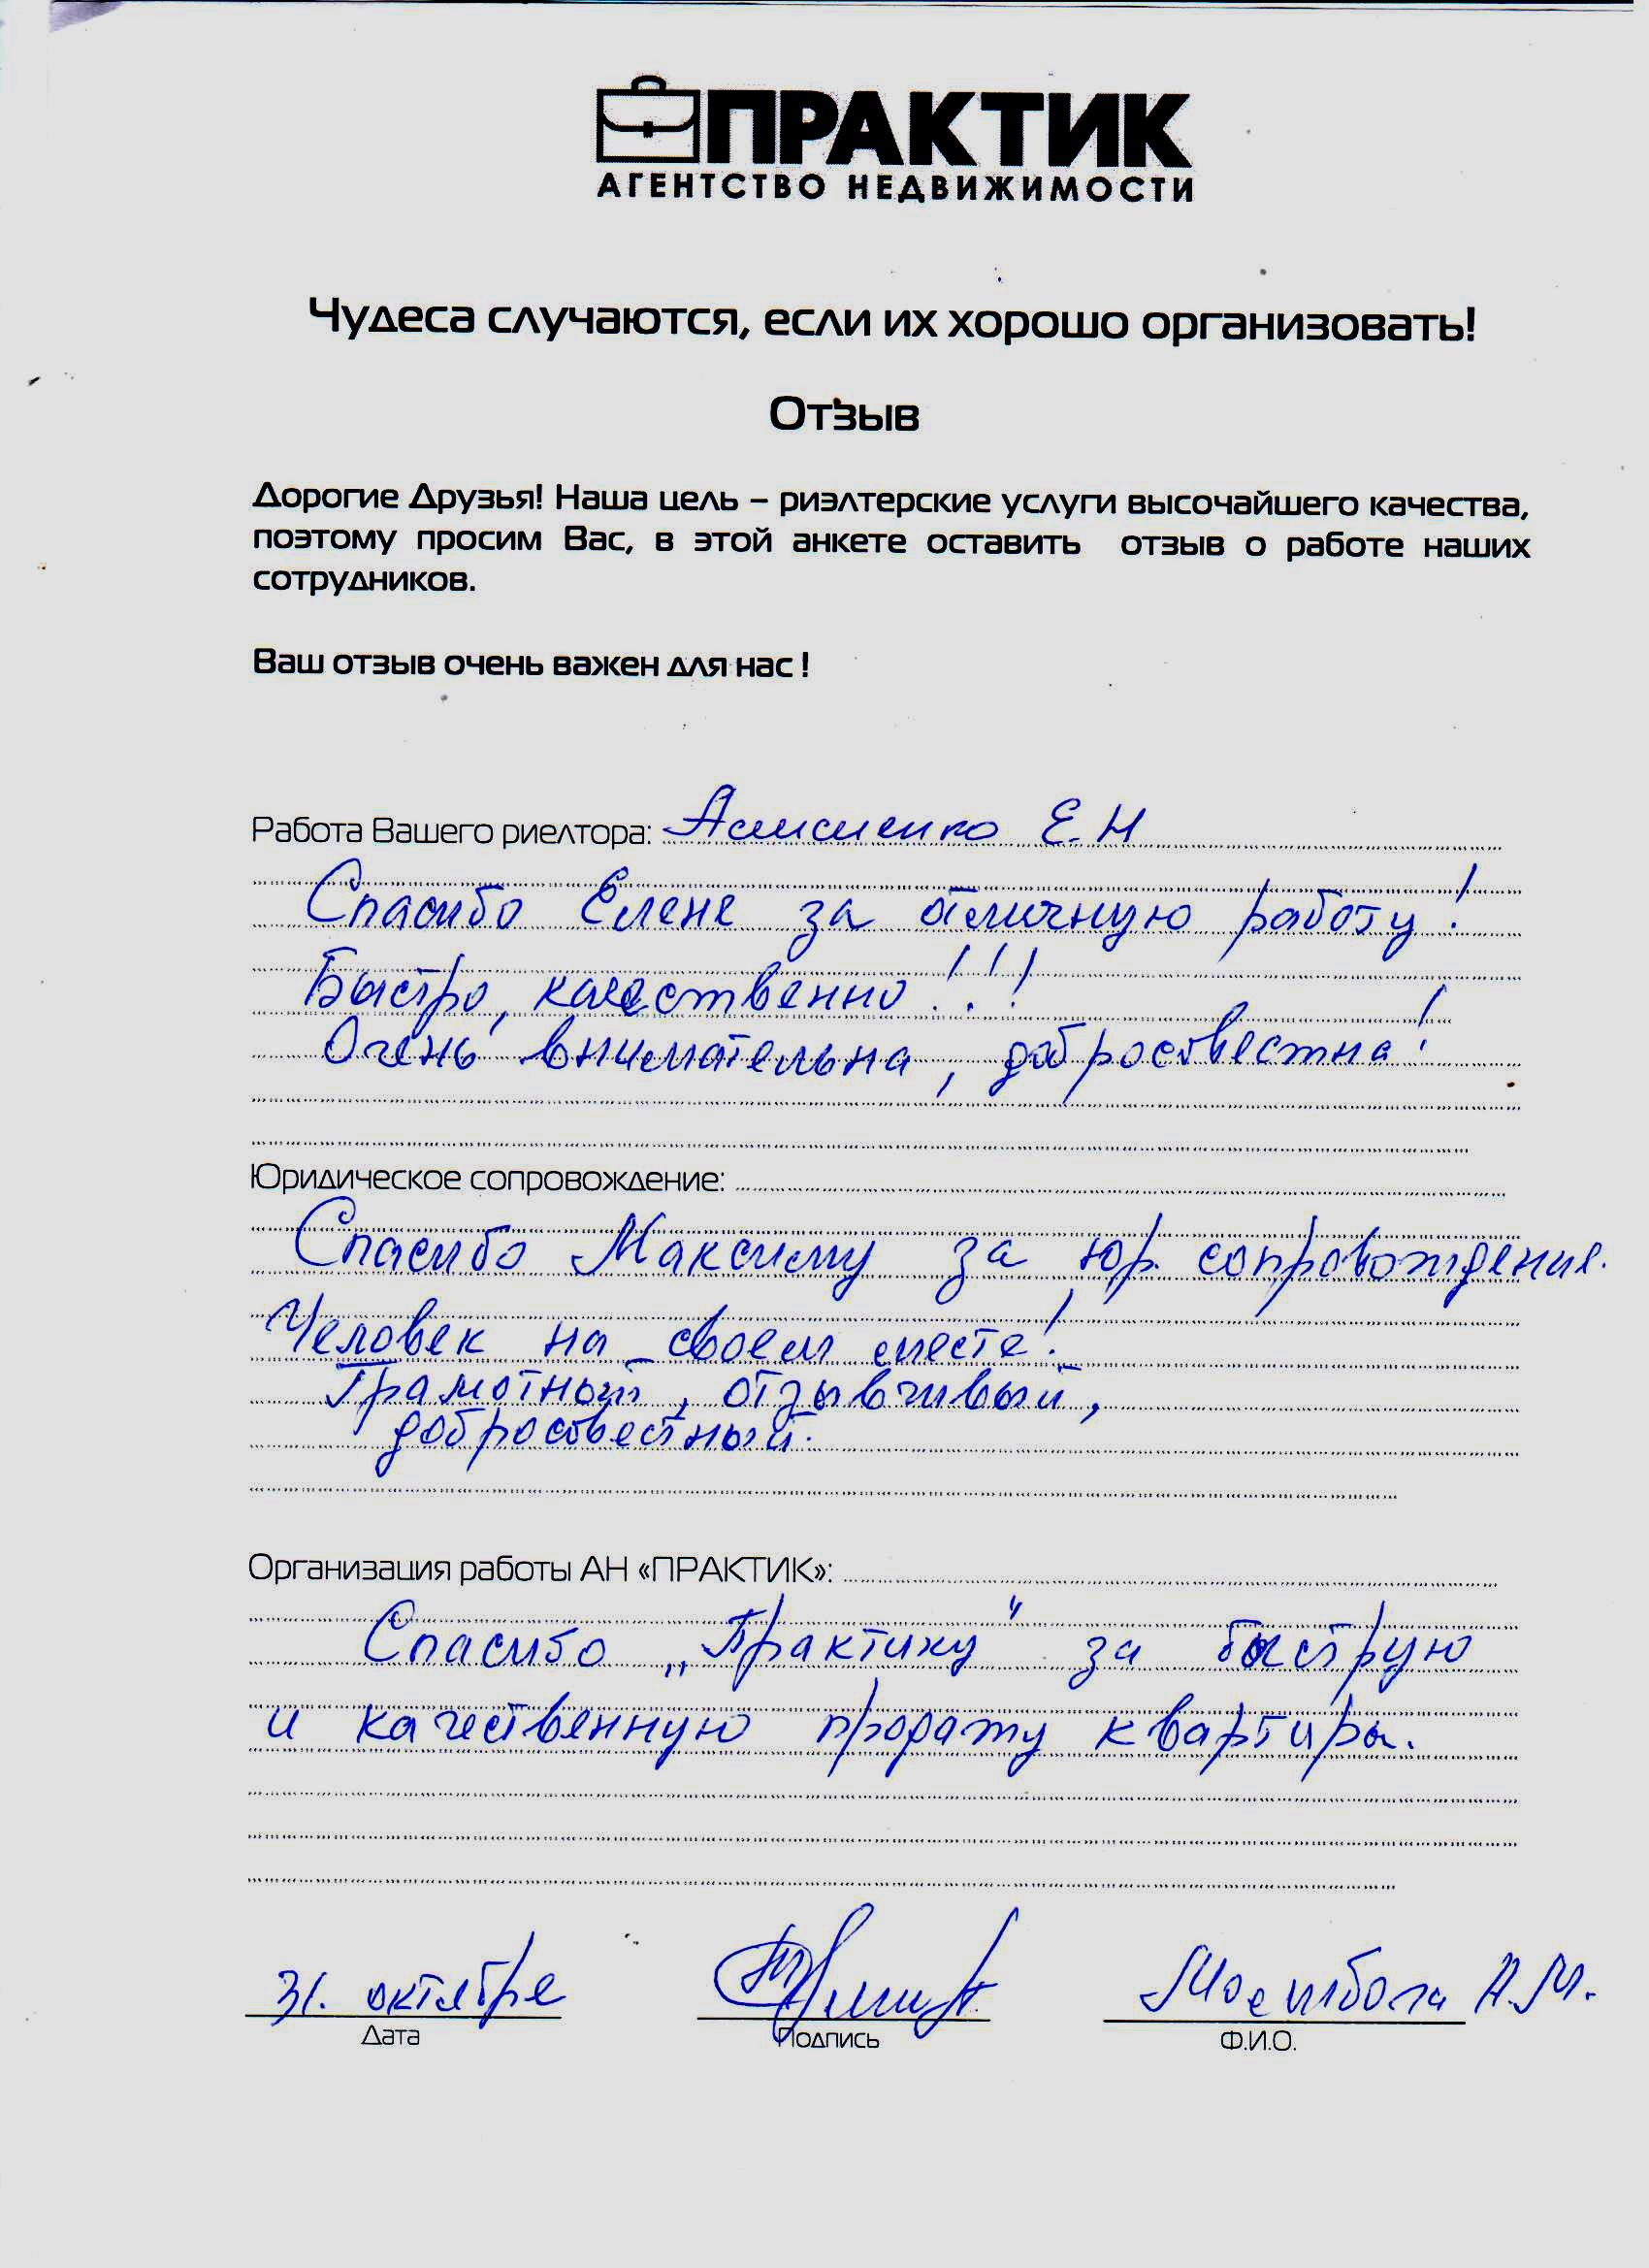 ПРАКТИК
АГЕНТСТВО НЕДВИЖИМОСТИ
Чудеса случаются, если их хорошо организовать!
Отзыв
Дорогие Друзья! Наша цель – риэлтерские услуги высочайшего качества,
поэтому просим Вас, в этой анкете оставить отзыв о работе наших
сотрудников.
Ваш отзыв очень важен для нас !
Работа Вашего риелтора: Е.Н
Спасибо Елене за отличную работу!
Быстро, качественно!!!
Очень внимательна, добросовестна!
Юридическое сопровождение:
Спасибо Максиму за юр. сопровождение.
Человек на своем месте!
Грамотный, отзывчивый,
добросовестный.
Организация работы АН «ПРАКТИК»:
Спасибо „Практику" за быструю
и качественную продажу квартиры.
31. октября А.М.
Дата Подпись Ф.И.О.